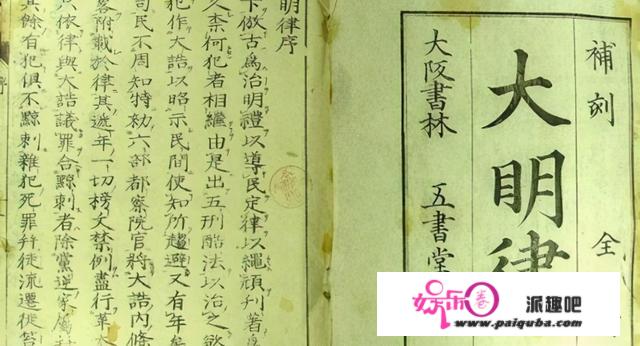 補刻 全
大明律
大阪書林 五書堂
明律序
下倣古爲治明禮以導民定律以繩頑刋著
久柰何犯者相繼由是出五刑酷法以治之欲
犯作大誥以昭示民間使知所趨避又有年
司民不周知特勅六部都察院官將大誥内條
附載於律其遞年一切榜文禁例盡行革
依律與大誥議罪合黥刺者除黨逆家屬
其餘有犯俱不黥刺雜犯死罪并徒流遷徙笞
序
娱乐卷
派趣吧
www.paiquba.com